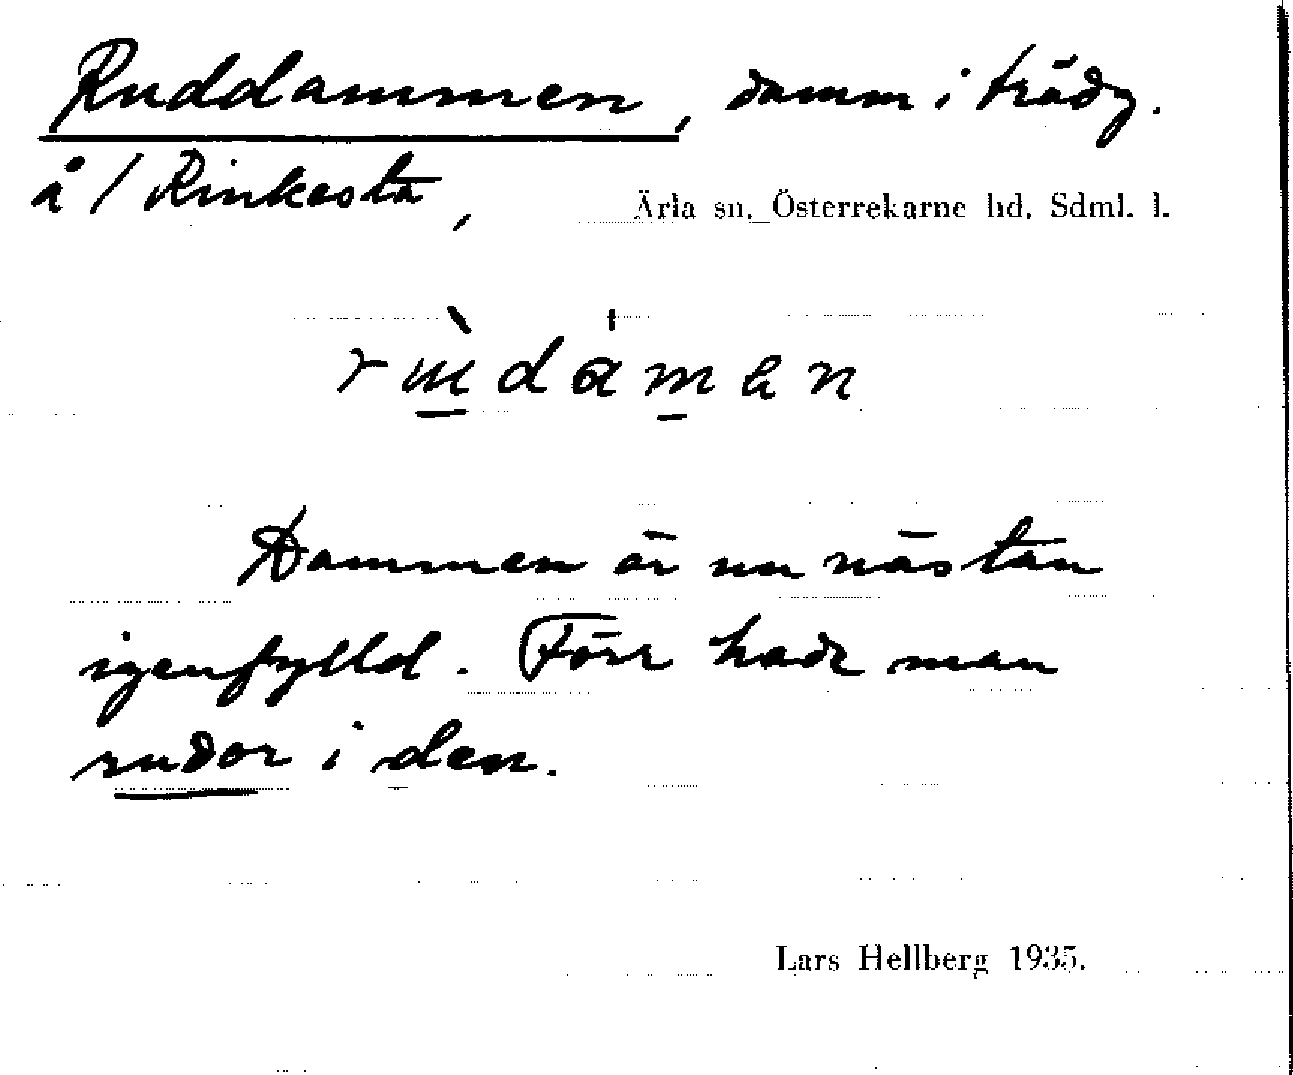 Ruddammen, damm i trädg.
å / Rinkesta, Ärla sn. Österrekarne hd. Sdml. l.
Dammen är nu nästan
igenfylld. Förr hade man
rudor i den.
Lars Hellberg 1935.